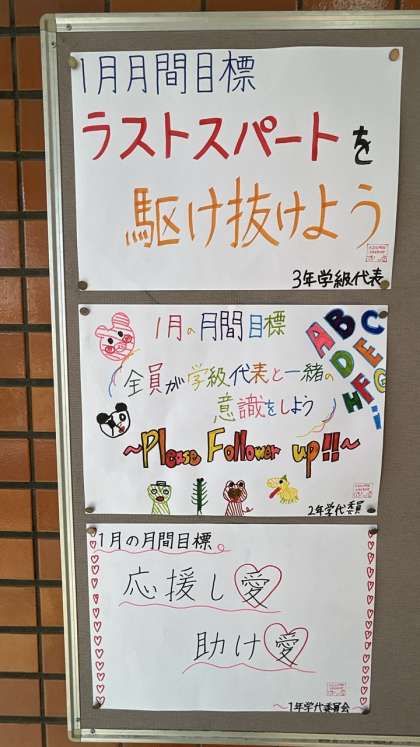 1月月間目標
ラストスパートを
駆け抜けよう
3年学級代表
1月の月間目標
全員が学級代表と一緒の
意識をしよう
~Please Follower up!!~
ABC
DE
HFG
i
2年学代委員
1月の月間目標。
応援し愛
助け愛
~1年学代委員会